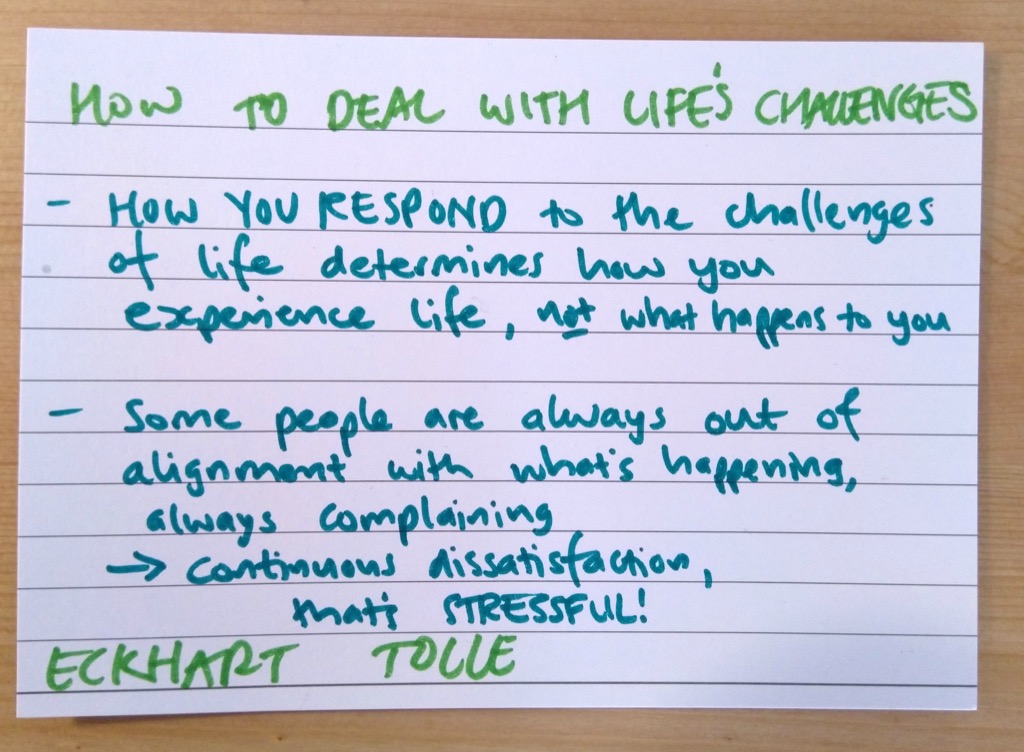 HOW TO DEAL WITH LIFE'S CHALLENGES
- HOW YOU RESPOND to the challenges
of life determines how you
experience life, not what happens to you
- Some people are always out of
alignment with what's happening,
always complaining
→ continuous dissatisfaction,
that's STRESSFUL!
ECKHART TOLLE